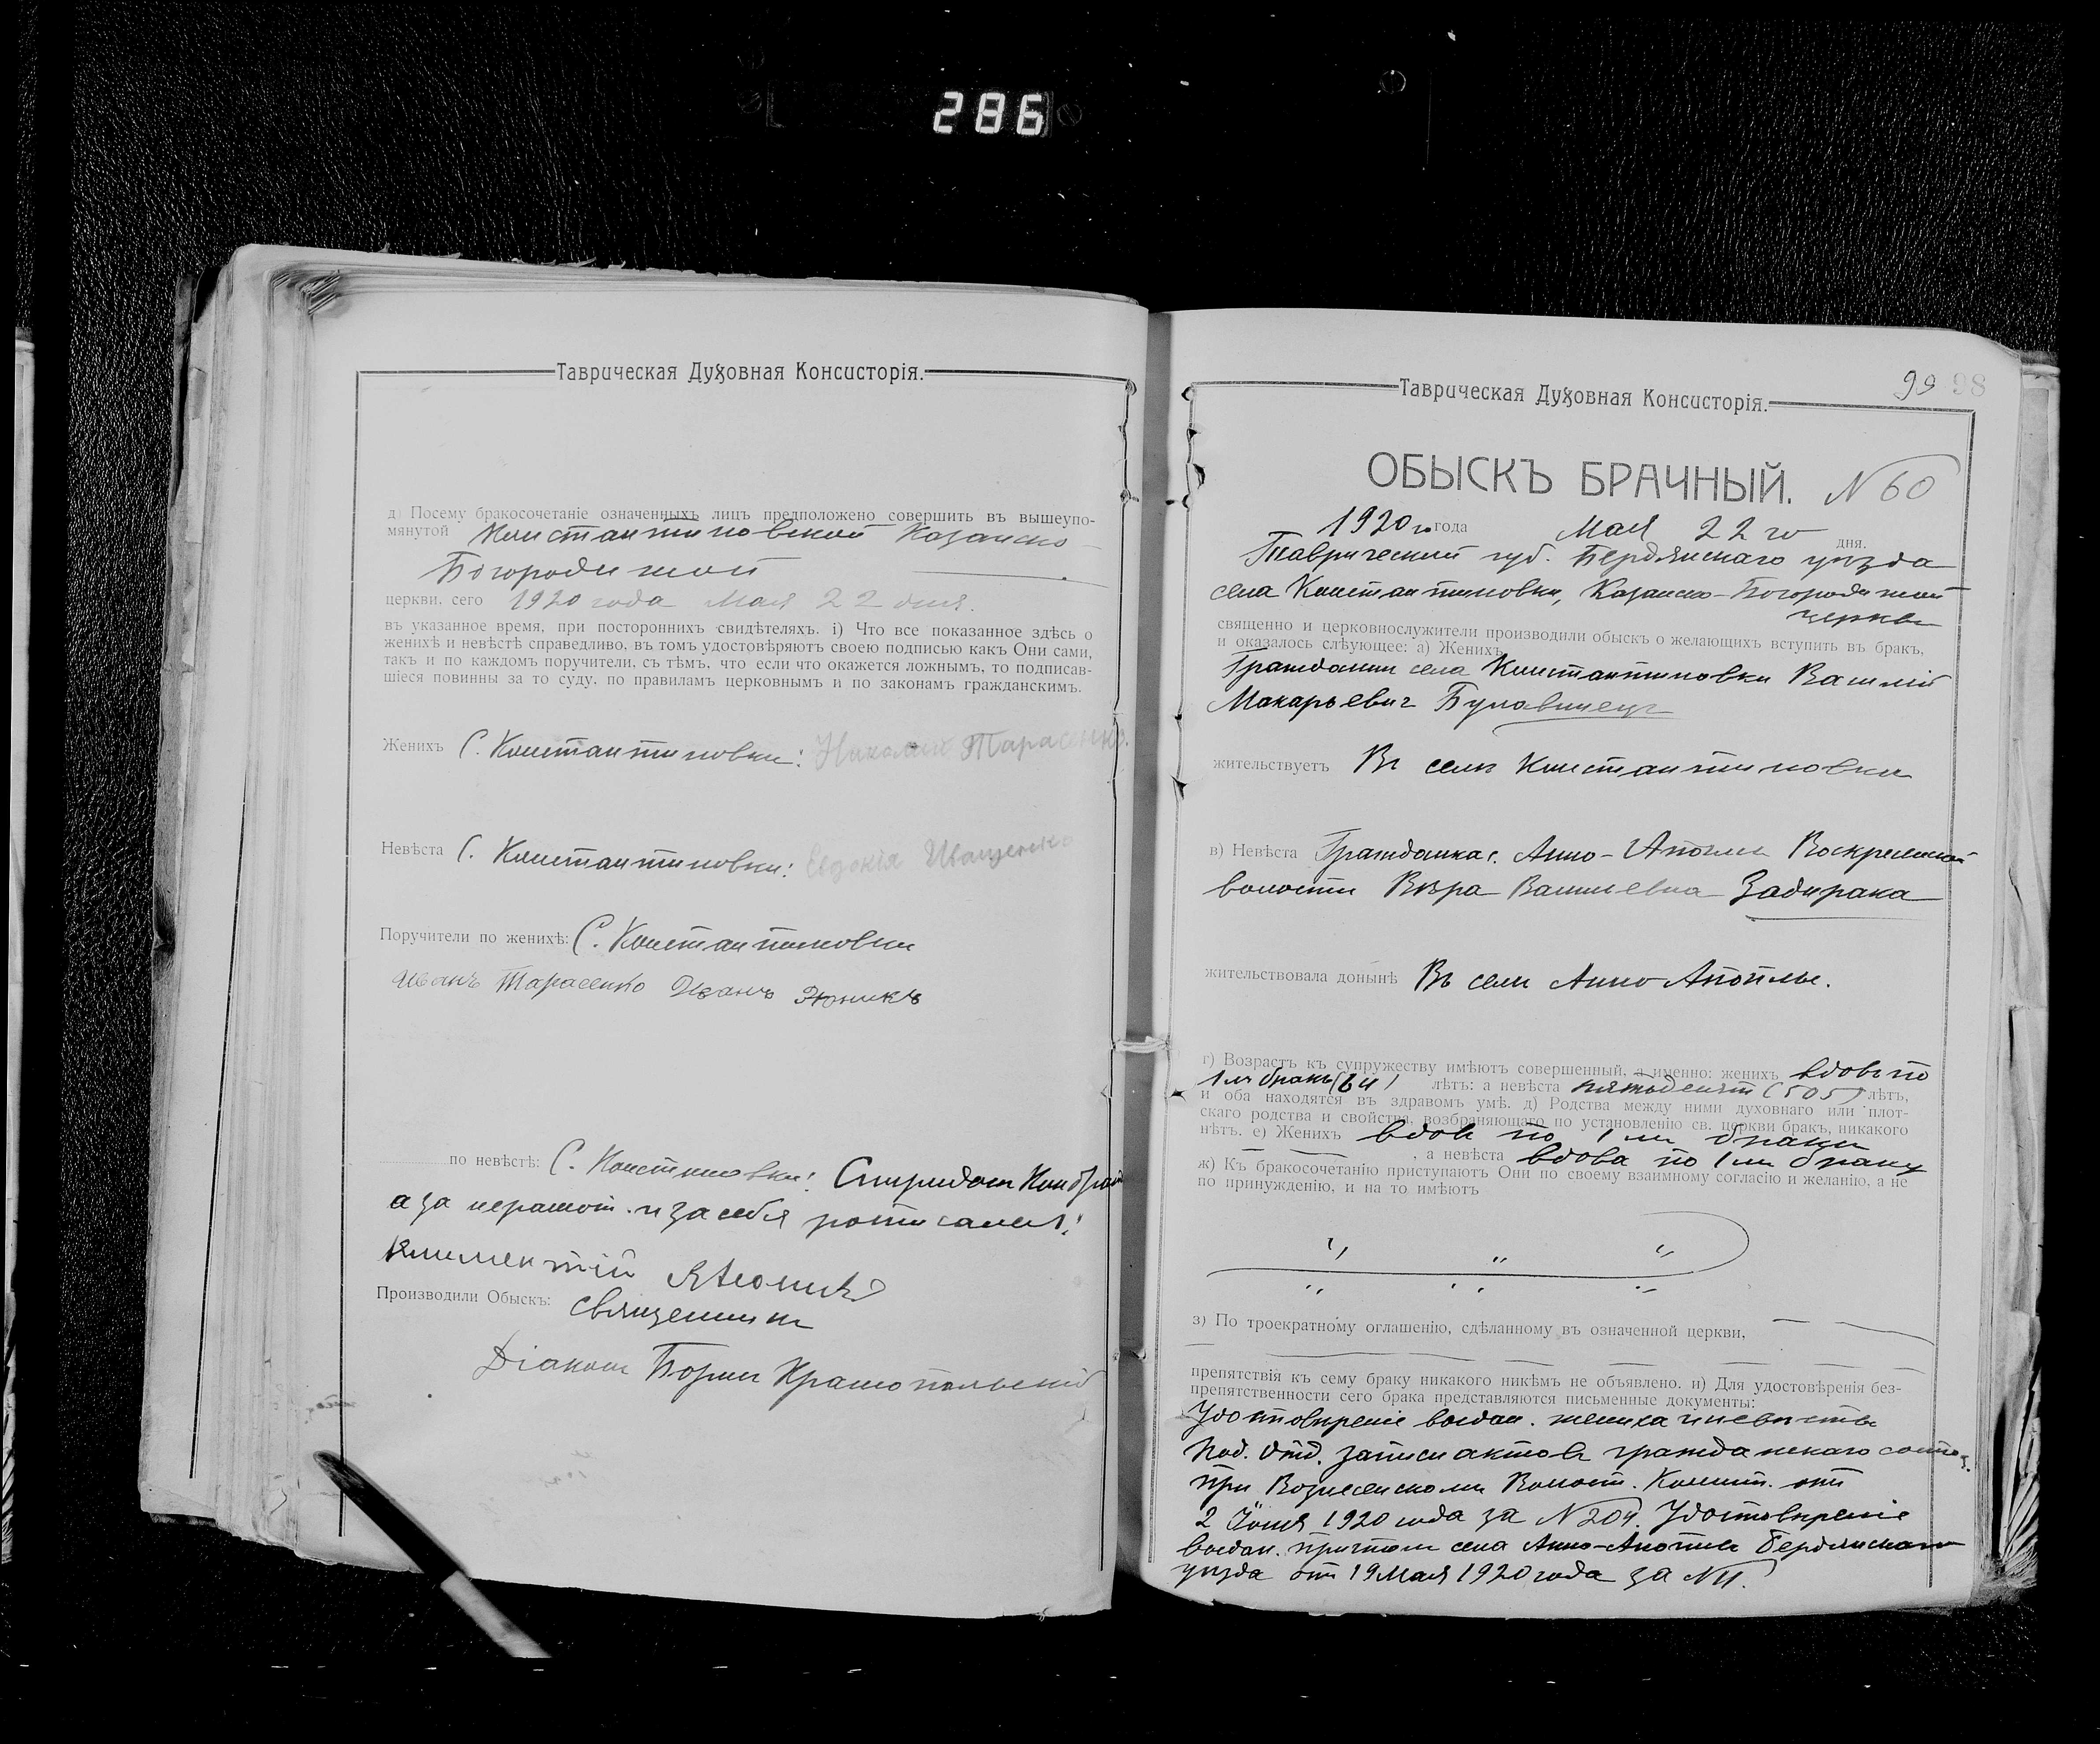 286
Таврическая Духовная Консисторія.
д) Посему бракосочетаніе означенныхъ лицъ предположено совершить въ вышеупо-
мянутой Константиновской Казанско-
Богородичной
церкви, сего 1920 года Мая 22 дня.
въ указанное время, при постороннихъ свидѣтеляхъ. i) Что все показанное здѣсь о
женихѣ и невѣстѣ справедливо, въ томъ удостовѣряютъ своею подписью какъ Они сами,
такъ и по каждомъ поручители, съ тѣмъ, что если что окажется ложнымъ, то подписав-
шіеся повинны за то суду, по правиламъ церковнымъ и по законамъ гражданскимъ.
Женихъ С. Константиновки: Николай Тарасенко.
Невѣста С. Константиновки: Евдокія Иващенко
Поручители по женихѣ: С. Константиновки
Иванъ Тарасенко Иванъ
по невѣстѣ: С. Спиридон
а за неграмот. и за себя росписался:
Климентій
Производили Обыскъ: Священник
Діакон Борис Краснопольскій
Таврическая Духовная Консисторія.
99 98
ОБЫСКЪ БРАЧНЫЙ. N 60
1920 го года Мая 22 го дня.
Таврической губ. Бердянскаго уѣзда
села Константиновки, Казанско-Богородичной
церкви
священно и церковнослужители производили обыскъ о желающихъ вступить въ бракъ,
и оказалось слѣующее: а) Женихъ
Гражданин села Константиновки Василій
Макарьевич Булавинец
жительствуетъ Въ селѣ Константиновки
в) Невѣста Гражданка с. Анно- Воскресенской
волости Вѣра Васильевна Задирака
жительствовала донынѣ Въ селѣ Анно-
г) Возрастъ къ супружеству имѣютъ совершенный, а именно: женихъ вдовъ по
1 мъ бракѣ лѣтъ: а невѣста пятьдесят лѣтъ,
и оба находятся въ здравомъ умѣ. д) Родства между ними духовнаго или плот-
скаго родства и свойства, возбраняющаго по установленію св. церкви бракъ, никакого
нѣтъ. е) Женихъ вдов по 1 м браки
, а невѣста вдова по 1 м браку
ж) Къ бракосочетанію приступаютъ Они по своему взаимному согласію и желанію, а не
по принужденію, и на то имѣютъ
з) По троекратному оглашенію, сдѣланному въ означенной церкви,
препятствія къ сему браку никакого никѣмъ не объявлено. и) Для удостовѣренія без-
препятственности сего брака представляются письменные документы:
Удостовѣреніе выдан. жениха и невѣсты
Под. Отд. записи актов гражданскаго состоя.
при Вознесенском Волост. Комит. от
2 Іюня 1920 года за N 204. Удостовѣреніе
выдан. причтом села Анно- Бердянскаго
уѣзда от 19 Мая 1920 года за N 11.